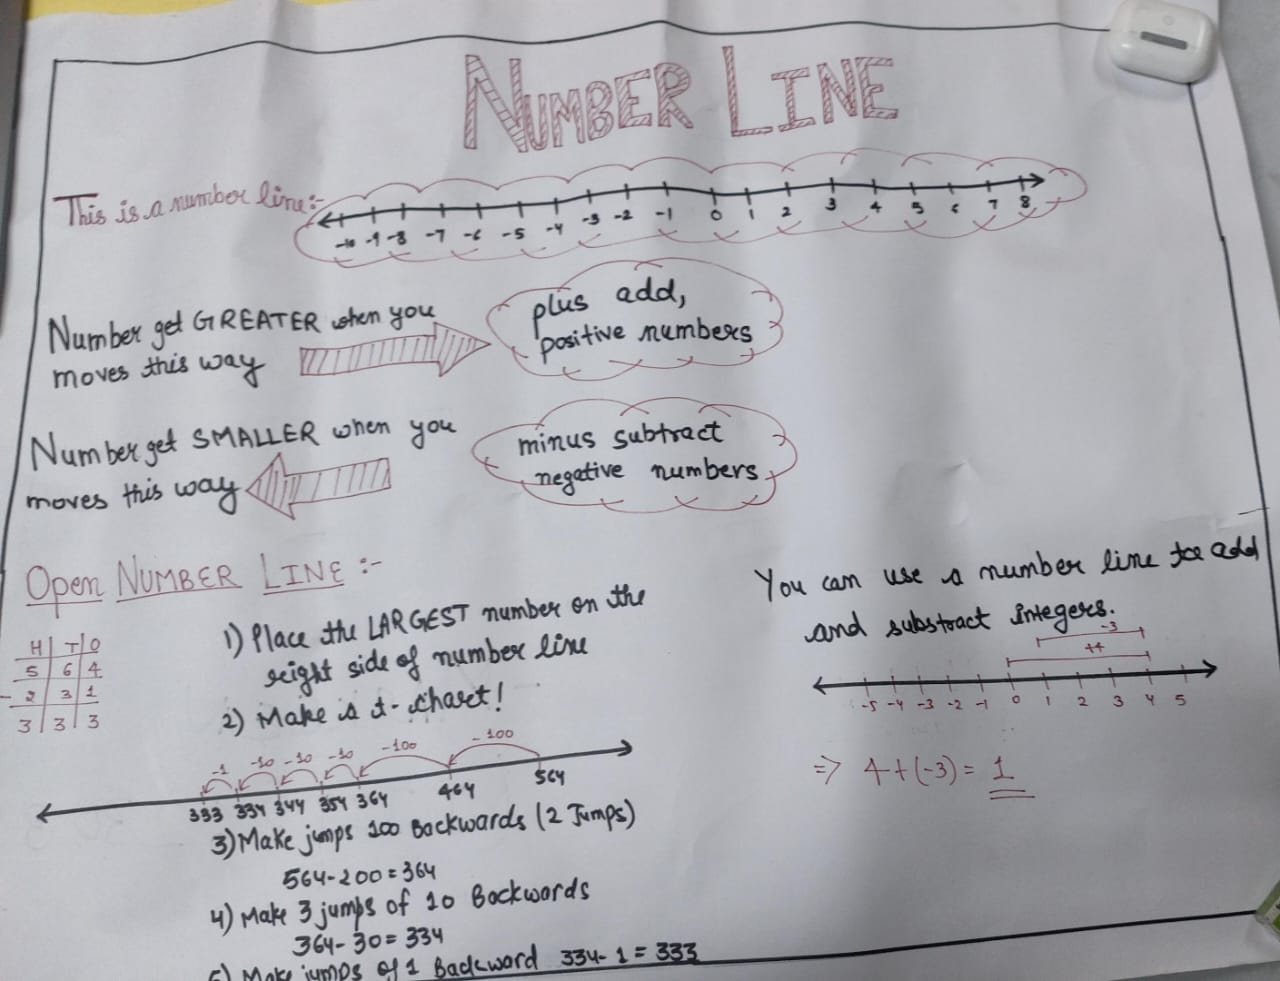 NUMBER LINE
This is a number line:-
-10 -9 -8 -7 -6 -5 -4 -3 -2 -1 0 1 2 3 4 5 6 7 8
Number get GREATER when you
moves this way
plus add,
positive numbers
Number get SMALLER when you
moves this way
minus subtract
negative numbers
Open NUMBER LINE :-
H T O
5 6 4
- 2 3 1
3 3 3
1) Place the LARGEST number on the
right side of number line
2) Make a t-chart!
-1 -10 -10 -10 -100 -100
333 334 344 354 364 464 564
3) Make jumps 100 Backwards (2 Jumps)
564-200=364
4) Make 3 jumps of 10 Backwards
364-30=334
5) Make jumps of 1 Backward 334-1=333
You can use a number line to add
and substract integers.
-3
+4
-5 -4 -3 -2 -1 0 1 2 3 4 5
⇒ 4+(-3)= 1